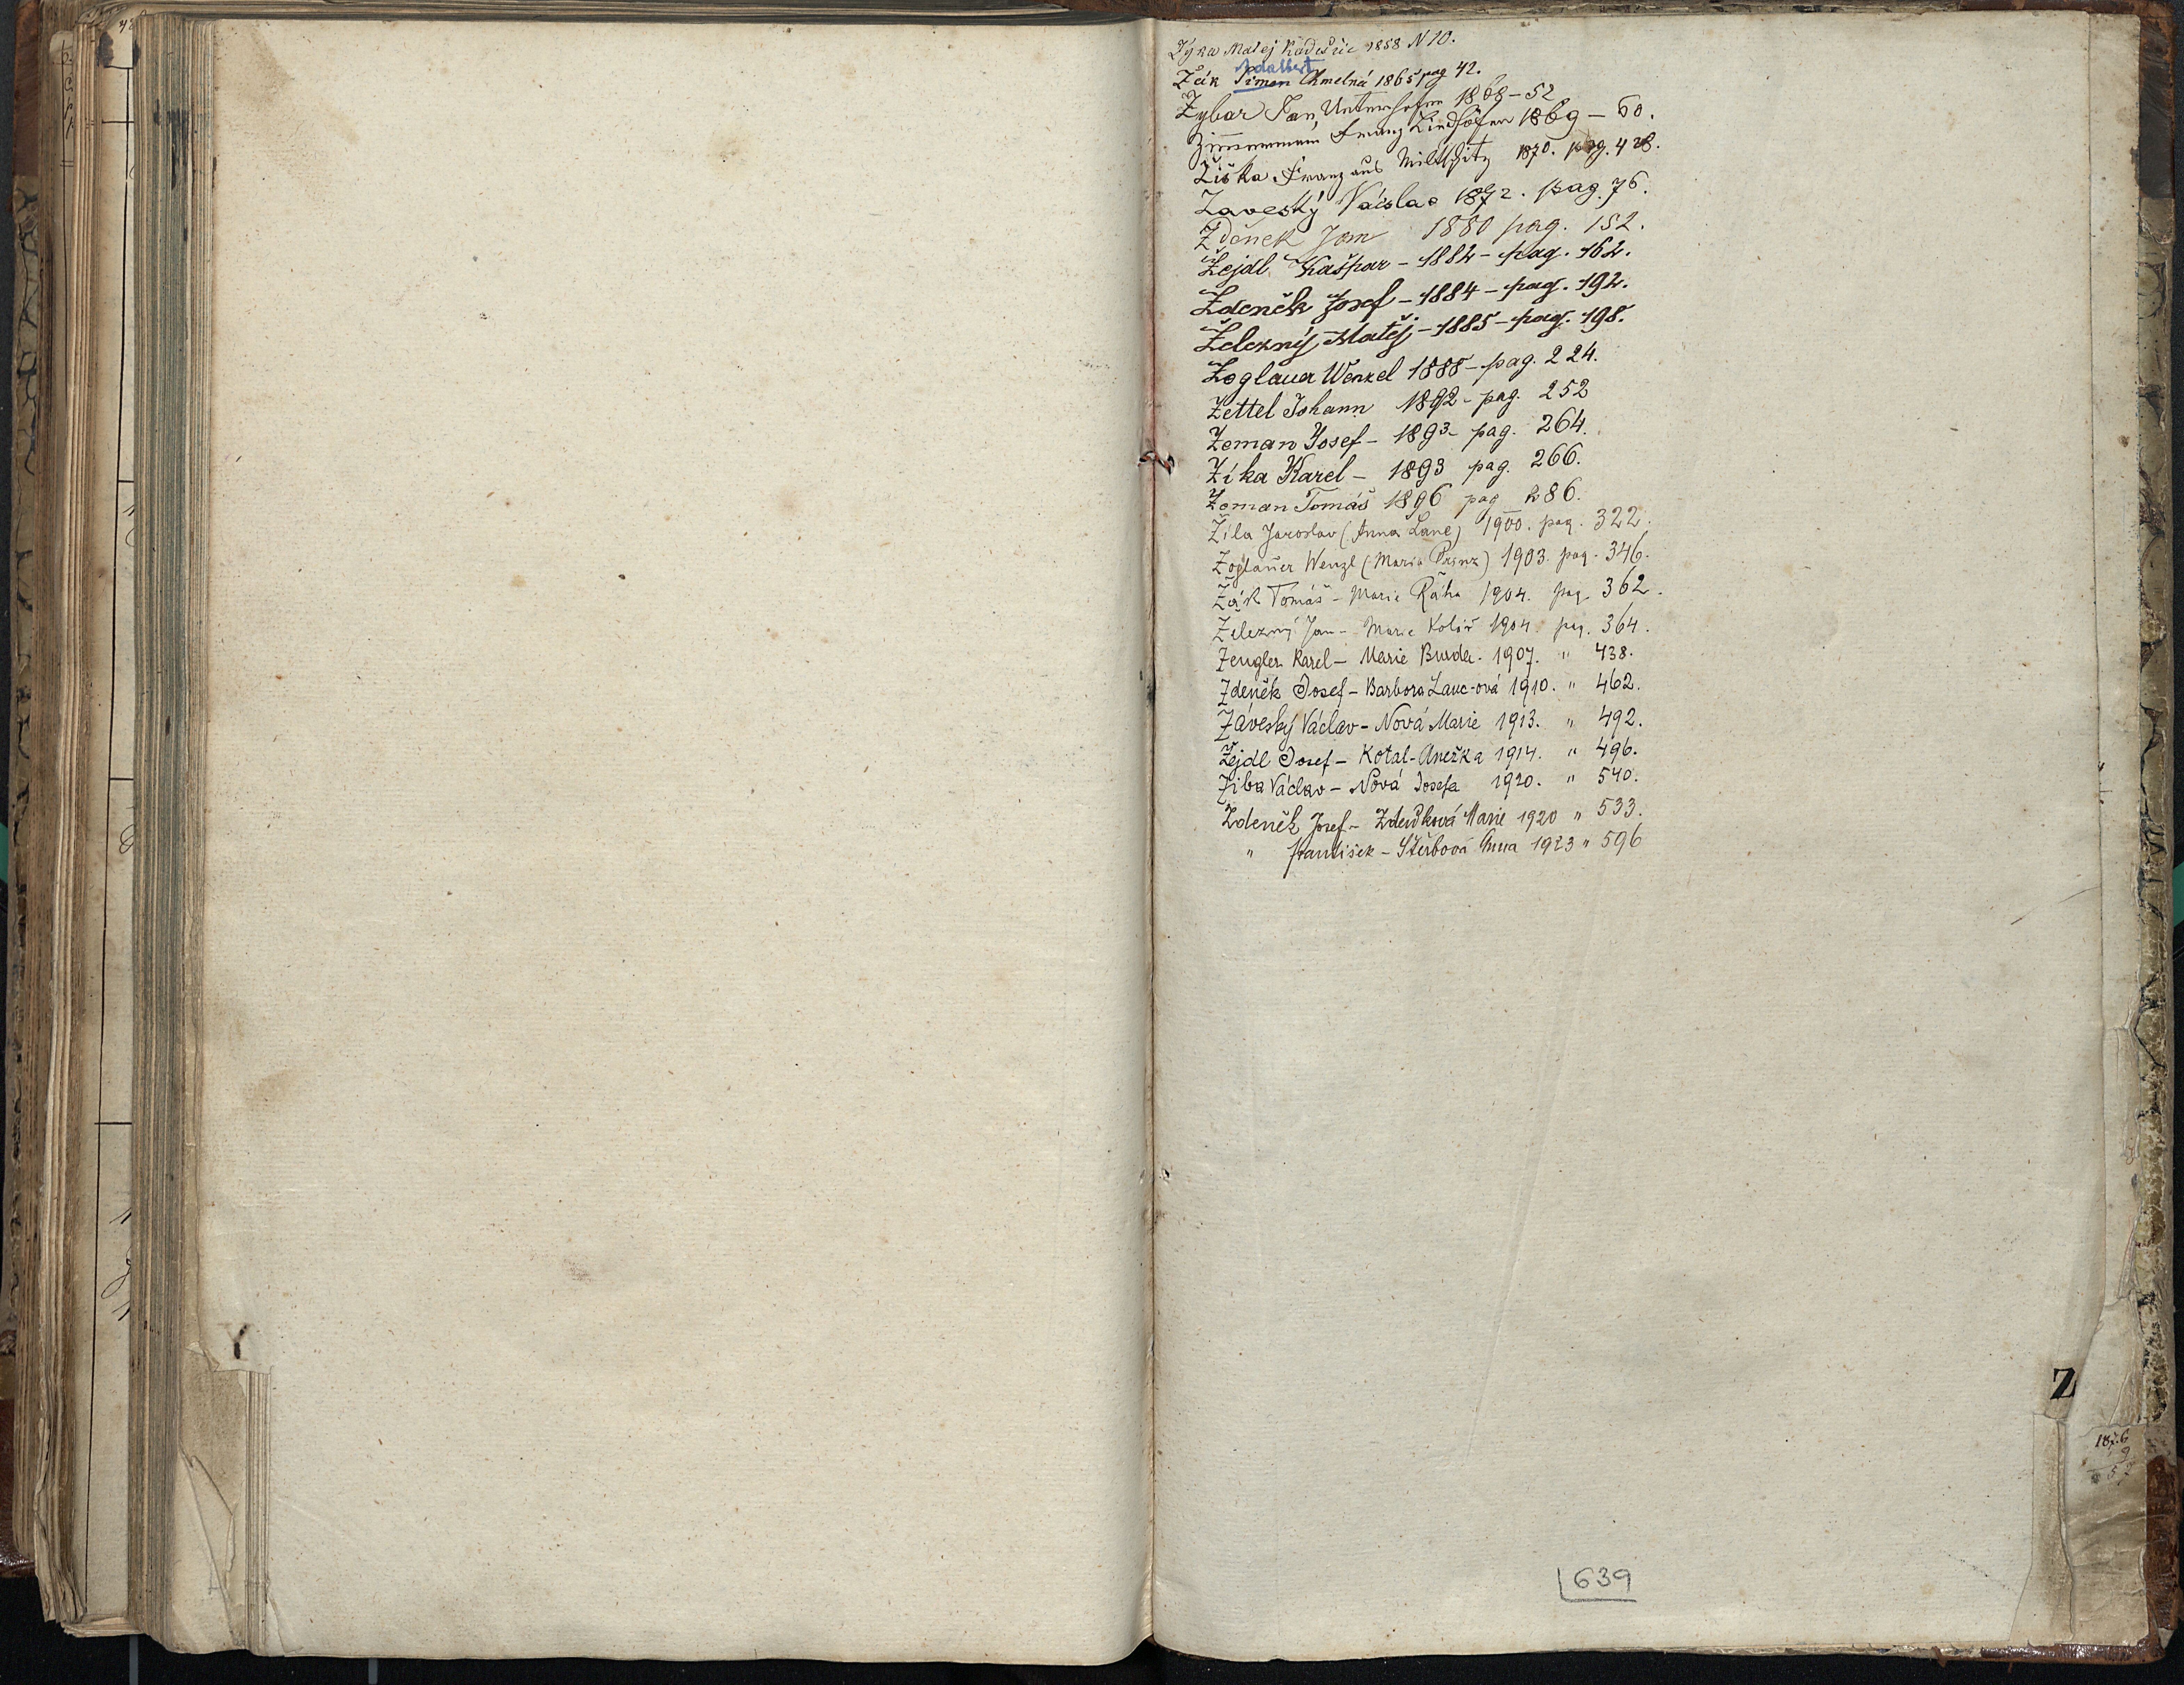 Zýka Matej Radešic 1858 N 10.
Adalbert
Žák Šimon Chmelná 1865 pag 42.
Zybar Jan, Unterhofen 1868 - 52
Zimmermann Franz Lindhofen 1869 - 60.
Žiška Franz aus Miltschitz 1870. pag. 428.
Zaveský Václav 1872. pag. 76.
Zdenek Jan 1880 pag. 152.
Žejdl Kašpar - 1882 - pag. 162.
Zdeněk Josef - 1884 - pag. 192.
Železný Matěj - 1885 - pag. 198.
Zoglauer Wenzel 1888 - pag. 224.
Zettel Johann 1892 - pag. 252
Zeman Josef - 1893 - pag. 264.
Zíka Karel - 1893 pag. 266.
Zeman Tomáš 1896 pag 286.
Žíla Jaroslav (Anna Lané) 1900. pag. 322.
Zoglauer Wenzl (Maria Prinz) 1903. pag. 346.
Žák Tomáš - Marie Ráha 1904. pag 362.
Železný Jan - Marie Kolář 1904 pag. 364.
Zengler Karel - Marie Burda. 1907. " 438.
Zdeněk Josef - Barbora Lanc-ová 1910. " 462.
Záveský Václav - Nová Marie 1913. " 492.
Žejdl Josef - Kotal-Anežka 1914. " 496.
Ziba Václav - Nová Josefa 1920. " 540.
Zdeněk Josef - Zdeňková Marie 1920 " 533.
" František - Štěrbová Anna 1923 " 596
Y
Z
639